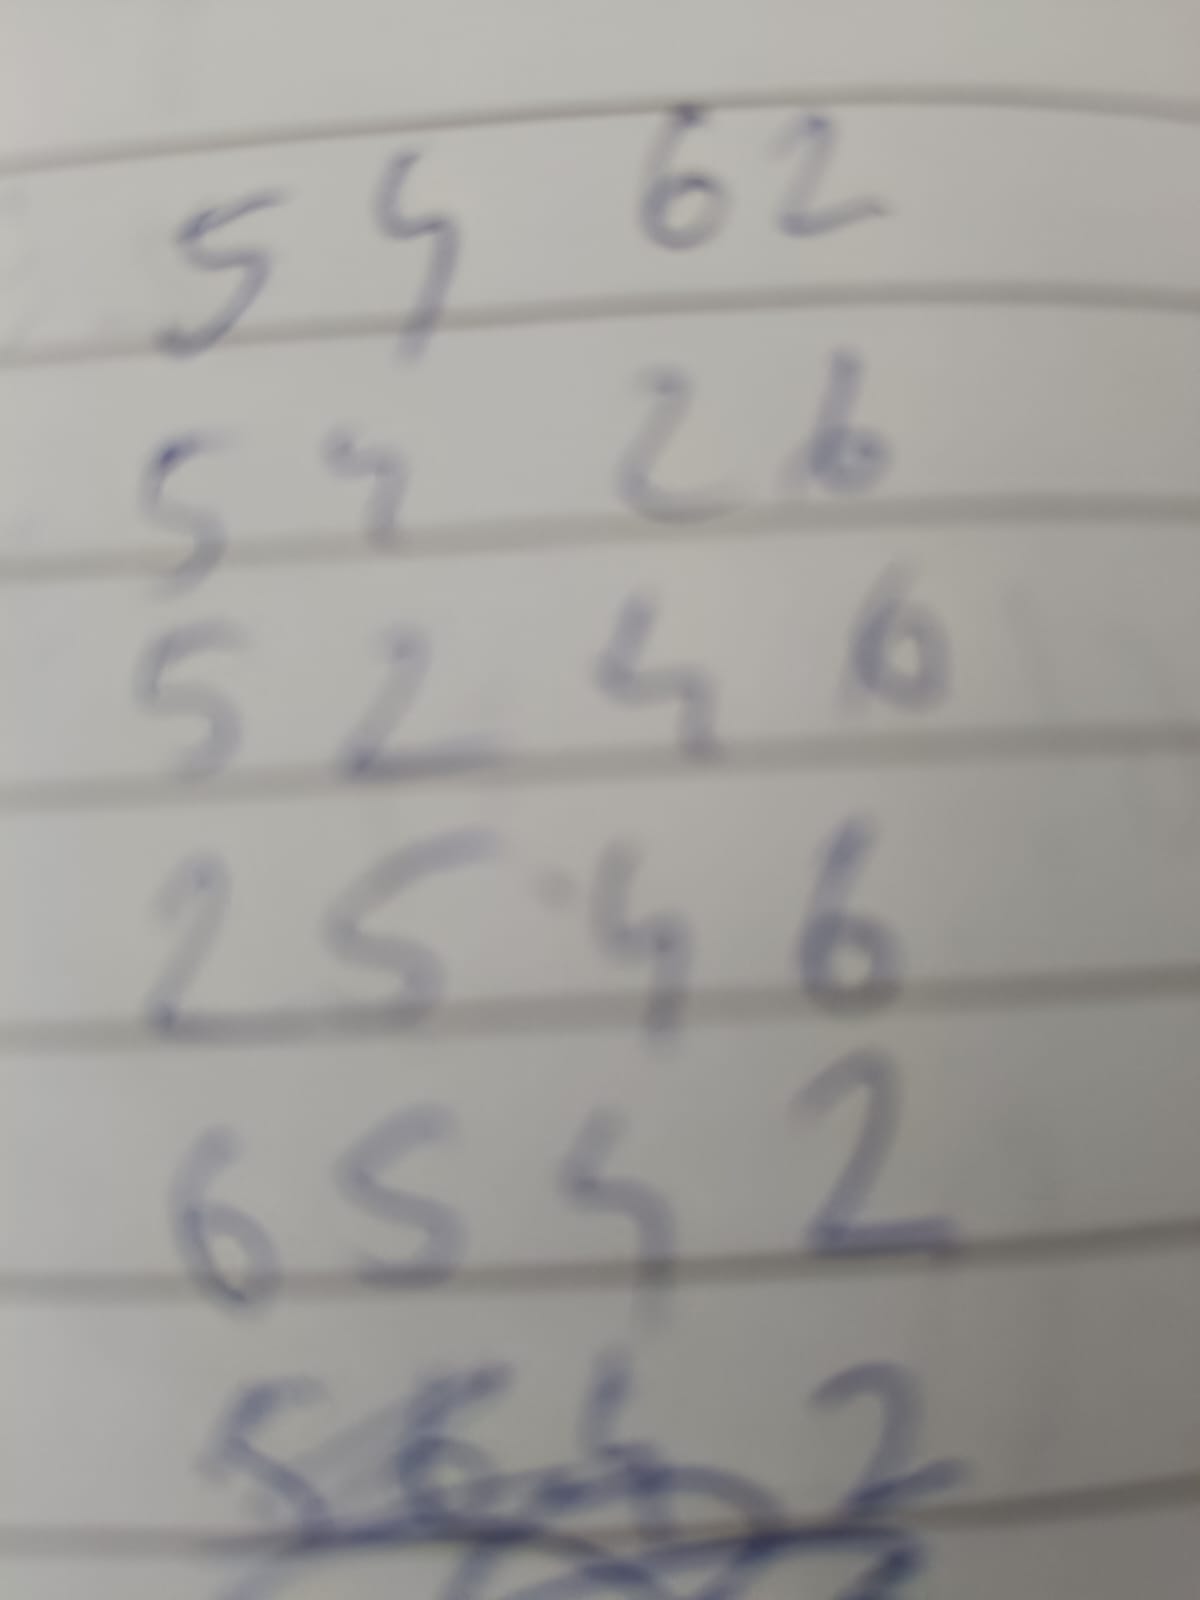 5 4 6 2
5 4 2 6
5 2 4 6
2 5 4 6
6 5 4 2
5 6 4 2